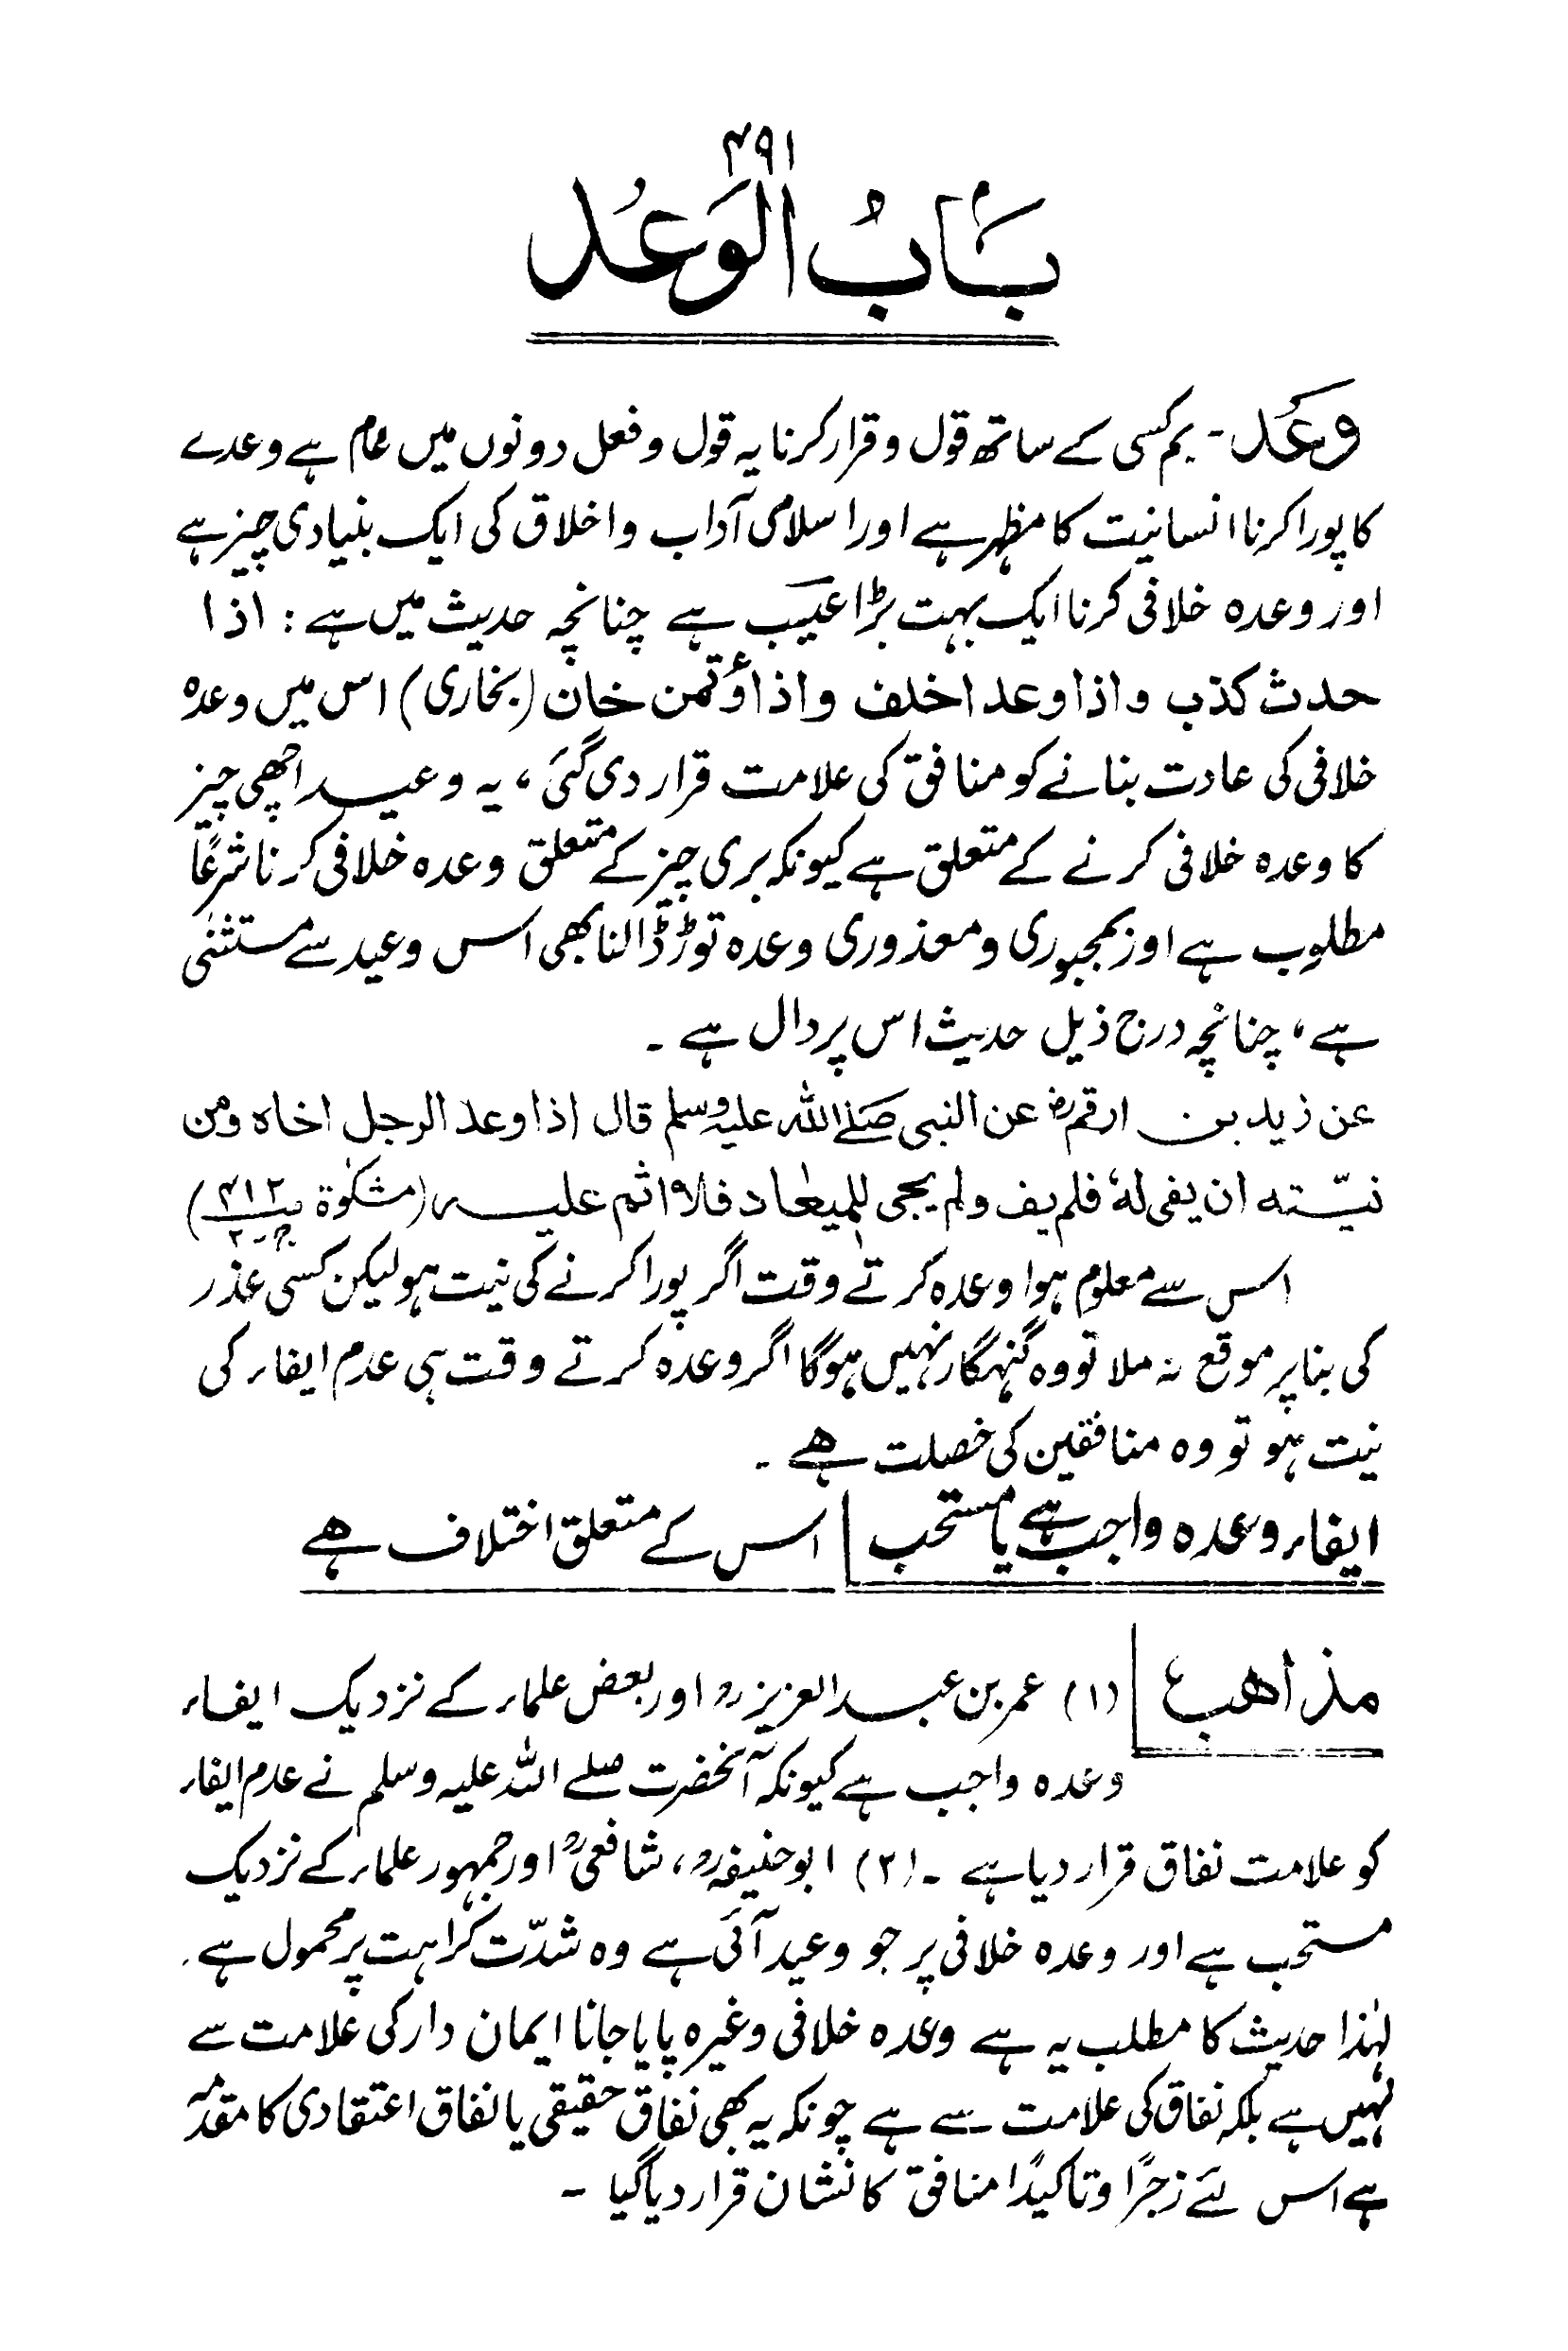 ۴۹۱
بَابُ الوَعُد
وعَد - بم کسی کے ساتھ قول وقرار کرنا یہ قول وفعل دونوں میں عام ہے وعدے
کا پورا کرنا انسانیت کا مظہر ہے اور اسلامی آداب واخلاق کی ایک بنیادی چیز ہے
اور وعدہ خلافی کرنا ایک بہت بڑا عیَب ہے چنانچہ حدیث میں ہے : اذا
حدث کذب واذا وعد اخلف واذا أوتمن خان (بخاری) اس میں وعدہ
خلافی کی عادت بنانے کو منافق کی علامت قرار دی گئی ، یہ وعید اچھی چیز
کا وعدہ خلافی کرنے کے متعلق ہے کیونکہ بری چیز کے متعلق وعدہ خلافی کرنا شرعًا
مطلوب ہے اور بمجبوری ومعذوری وعدہ توڑ ڈالنا بھی اس وعید سے مستثنٰی
ہے ، چنانچہ درج ذیل حدیث اس پر دال ہے ۔
عن زید بن ارقمؓ عن النبی صلے اللہ علیہ وسلم قال اذا وعد الرجل اخاہ ومن
نیّتہ ان یفی لہٗ فلم یف ولم یجی للمیعاد فلا اثم علیہ (مشکوٰۃ ۴۱۲ ج۲)
اس سے معلوم ہوا وعدہ کرتے وقت اگر پورا کرنے کی نیت ہو لیکن کسی عذر
کی بنا پر موقع نہ ملا تو وہ گنہگار نہیں ہوگا اگر وعدہ کرتے وقت ہی عدم ایفاء کی
نیت ہو تو وہ منافقین کی خصلت ہے ۔
ایفاء وعدہ واجب ہے یا مستحب اس کے متعلق اختلاف ہے
مذاھب (۱) عمر بن عبد العزیزؒ اور بعض علماء کے نزدیک ایفاء
وعدہ واجب ہے کیونکہ آنحضرت صلے اللہ علیہ وسلم نے عدم ایفاء
کو علامت نفاق قرار دیا ہے ۔ (۲) ابو حنیفہؒ ، شافعیؒ اور جمہور علماء کے نزدیک
مستحب ہے اور وعدہ خلافی پر جو وعید آئی ہے وہ شدّت کراہت پر محمول ہے ۔
لہٰذا حدیث کا مطلب یہ ہے وعدہ خلافی وغیرہ پایا جانا ایمان دار کی علامت سے
نہیں ہے بلکہ نفاق کی علامت سے ہے چونکہ یہ بھی نفاق حقیقی یا نفاق اعتقادی کا مقدمہ
ہے اس لئے زجرًا وتاکیدًا منافق کا نشان قرار دیا گیا ۔